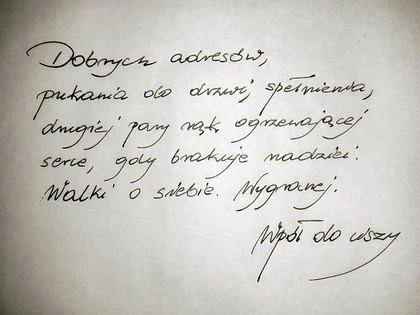 Dobrych adresów,
pukania do drzwi, spełnienia,
drugiej pary rąk ogrzewającej
serce, gdy brakuje nadziei.
Walki o siebie. Wygranej.
Wpół do wszy